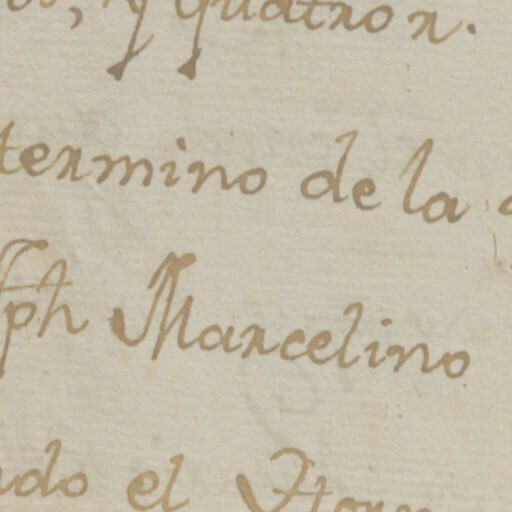 y quatro r.
termino de la
Jph Marcelino
el